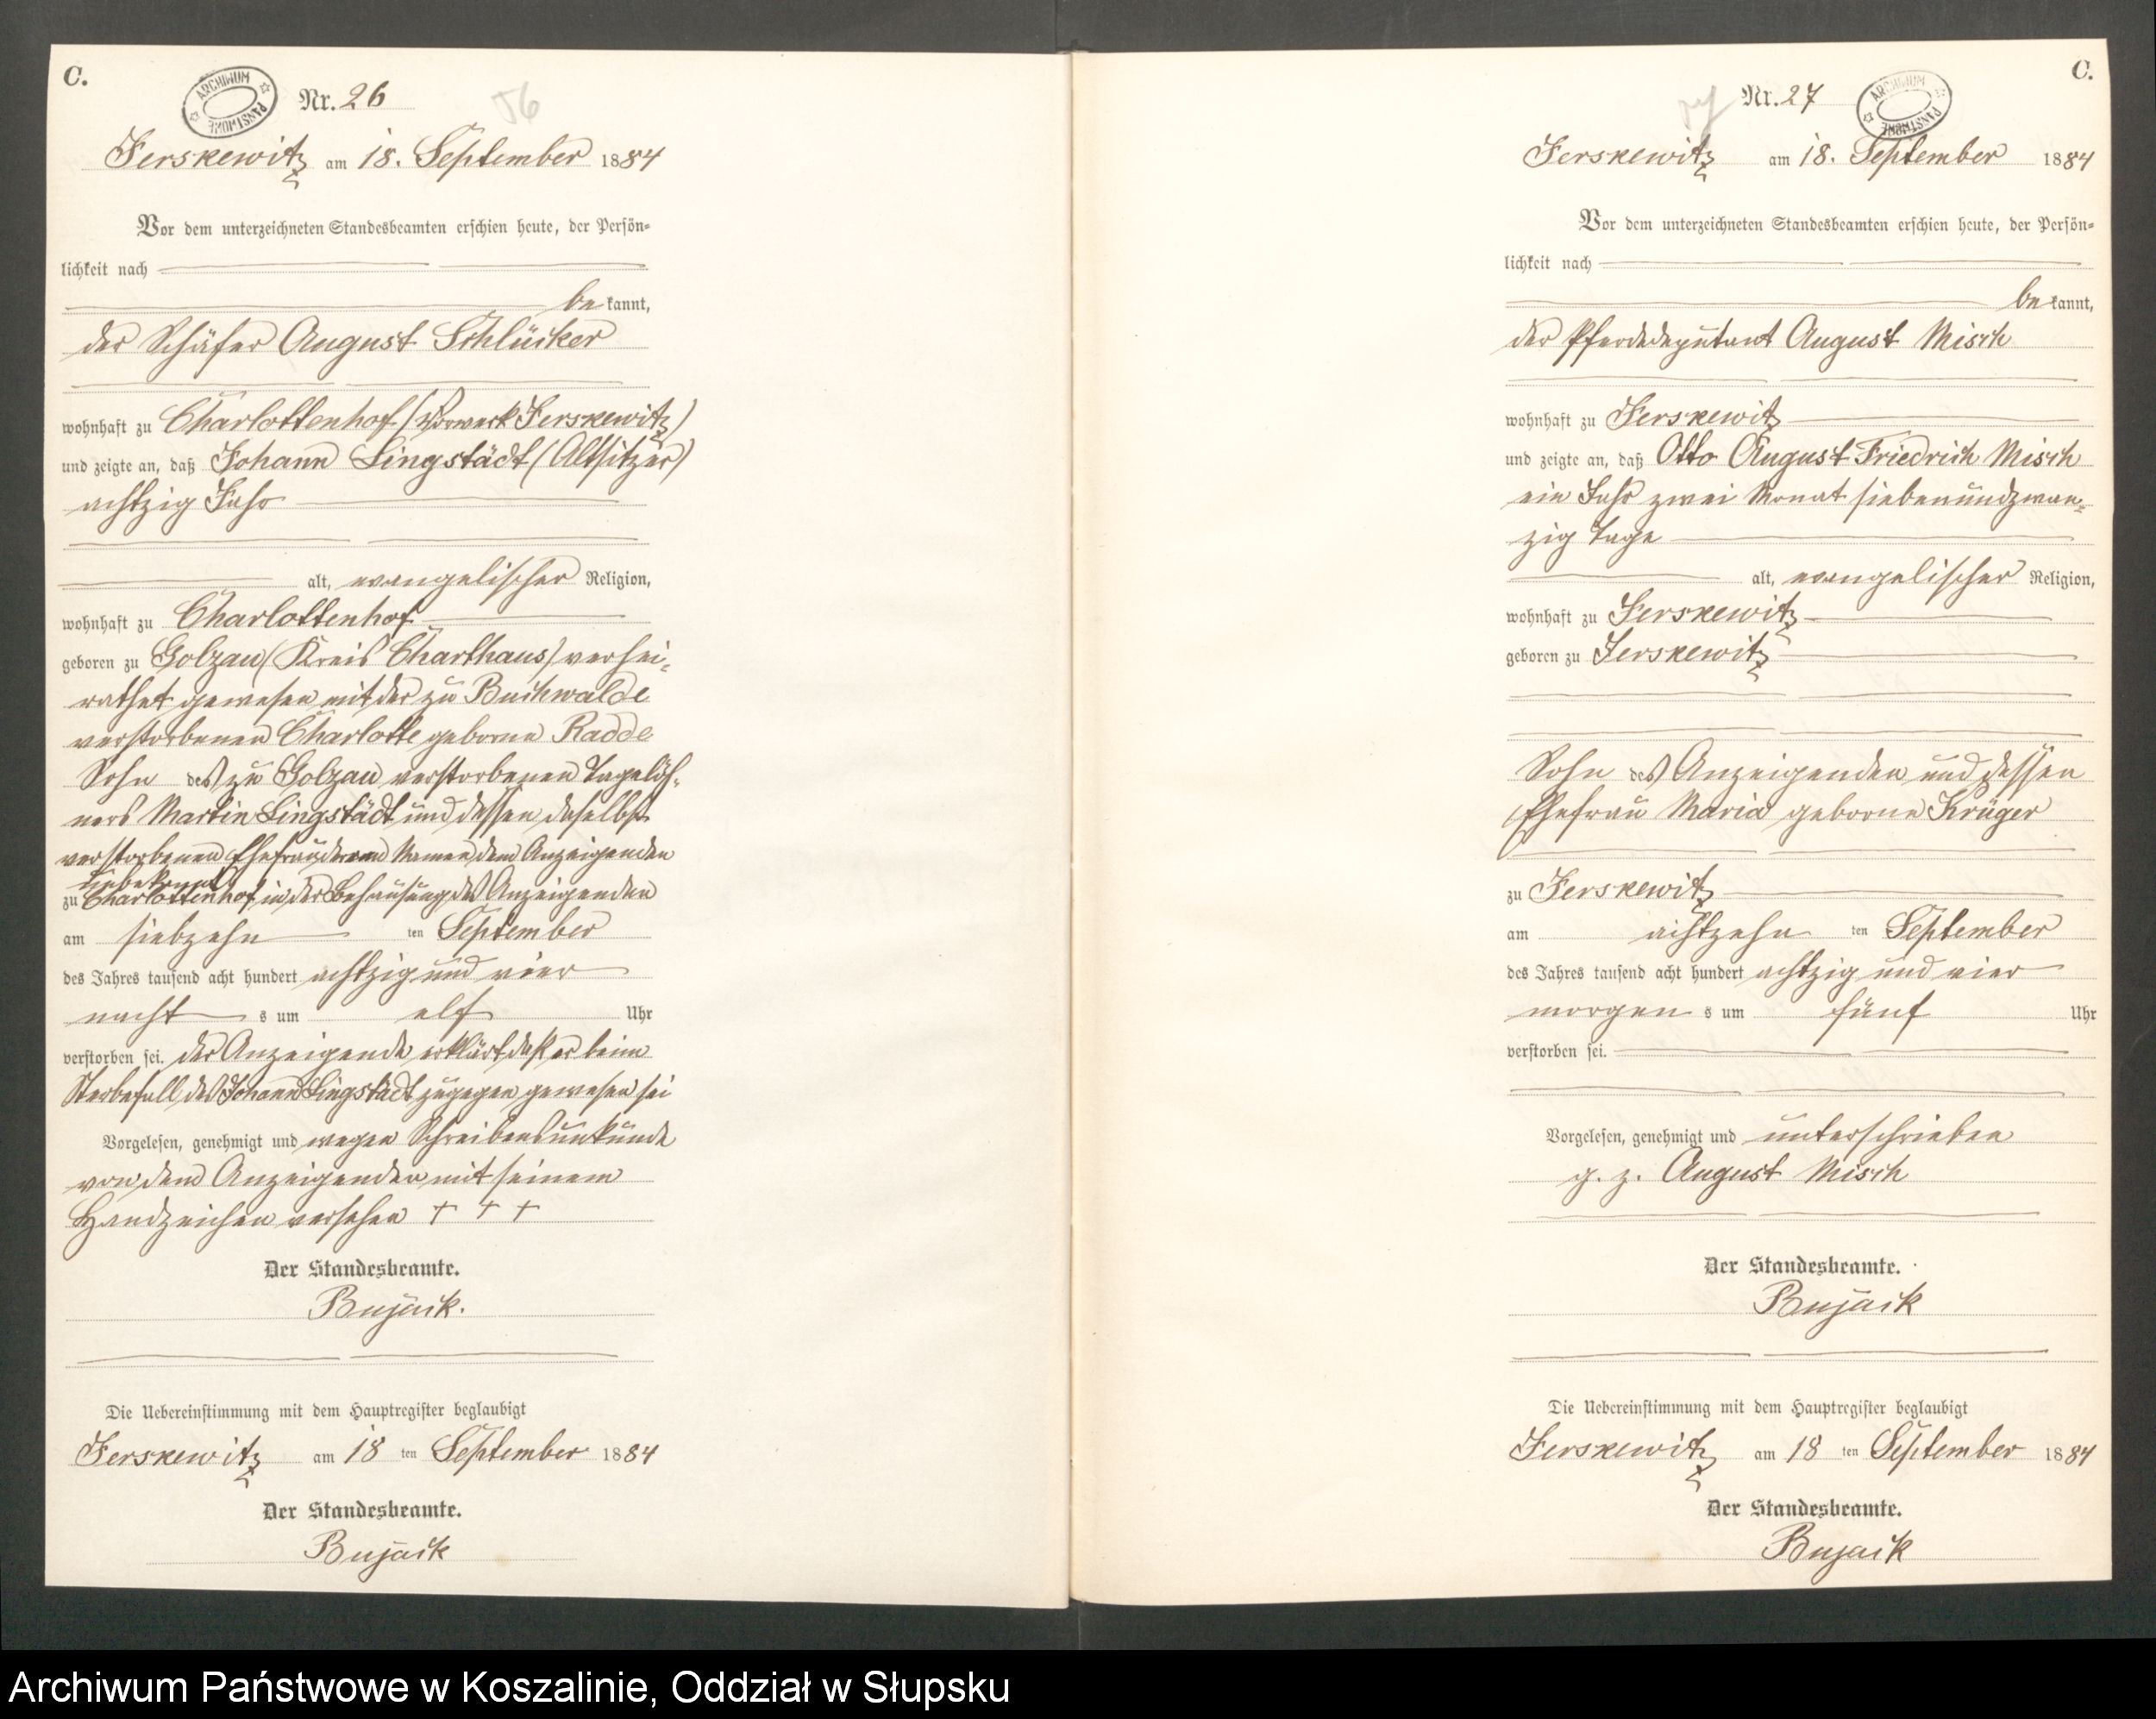 C.
ARCHIWUM PAŃSTWOWE
Nr. 26
56
Jerskewitz am 18. September 1884
Vor dem unterzeichneten Standesbeamten erschien heute, der Persön-
lichkeit nach
be kannt,
der Schäfer August Schlücker
wohnhaft zu Charlottenhof (Vorwerk Jerskewitz)
und zeigte an, daß Johann Lingstädt (Altsitzer)
achtzig Jahr
alt, evangelischer Religion,
wohnhaft zu Charlottenhof
geboren zu Golzau (Kreis Charthaus) verhei-
rathet gewesen mit der zu Buchwalde
verstorbenen Charlotte geborne Radde
Sohn des zu Golzau verstorbenen Tagelöh-
ners Martin Lingstädt und dessen daselbst
verstorbenen Ehefrau deren Namen dem Anzeigenden
unbekannt
zu Charlottenhof in der Behausung des Anzeigenden
am siebzehn ten September
des Jahres tausend acht hundert achtzig und vier
nacht s um elf Uhr
verstorben sei. der Anzeigende erklärt daß er beim
Sterbefall des Johann Lingstädt zugegen gewesen sei
Vorgelesen, genehmigt und wegen Schreibensunkunde
von dem Anzeigenden mit seinem
Handzeichen versehen + + +
Der Standesbeamte.
Bujack.
Die Uebereinstimmung mit dem Hauptregister beglaubigt
Jerskewitz am 18 ten September 1884
Der Standesbeamte.
Bujack
C.
Nr. 27
ARCHIWUM PAŃSTWOWE
Jerskewitz am 18. September 1884
Vor dem unterzeichneten Standesbeamten erschien heute, der Persön-
lichkeit nach
be kannt,
der Pferdedeputant August Misch
wohnhaft zu Jerskewitz
und zeigte an, daß Otto August Friedrich Misch
ein Jahr zwei Monat siebenundzwan-
zig Tage
alt, evangelischer Religion,
wohnhaft zu Jerskewitz
geboren zu Jerskewitz
Sohn des Anzeigenden und dessen
Ehefrau Maria geborne Krüger
zu Jerskewitz
am achtzehn ten September
des Jahres tausend acht hundert achtzig und vier
morgen s um fünf Uhr
verstorben sei.
Vorgelesen, genehmigt und unterschrieben
g. z. August Misch
Der Standesbeamte.
Bujack
Die Uebereinstimmung mit dem Hauptregister beglaubigt
Jerskewitz am 18 ten September 1884
Der Standesbeamte.
Bujack
Archiwum Państwowe w Koszalinie, Oddział w Słupsku